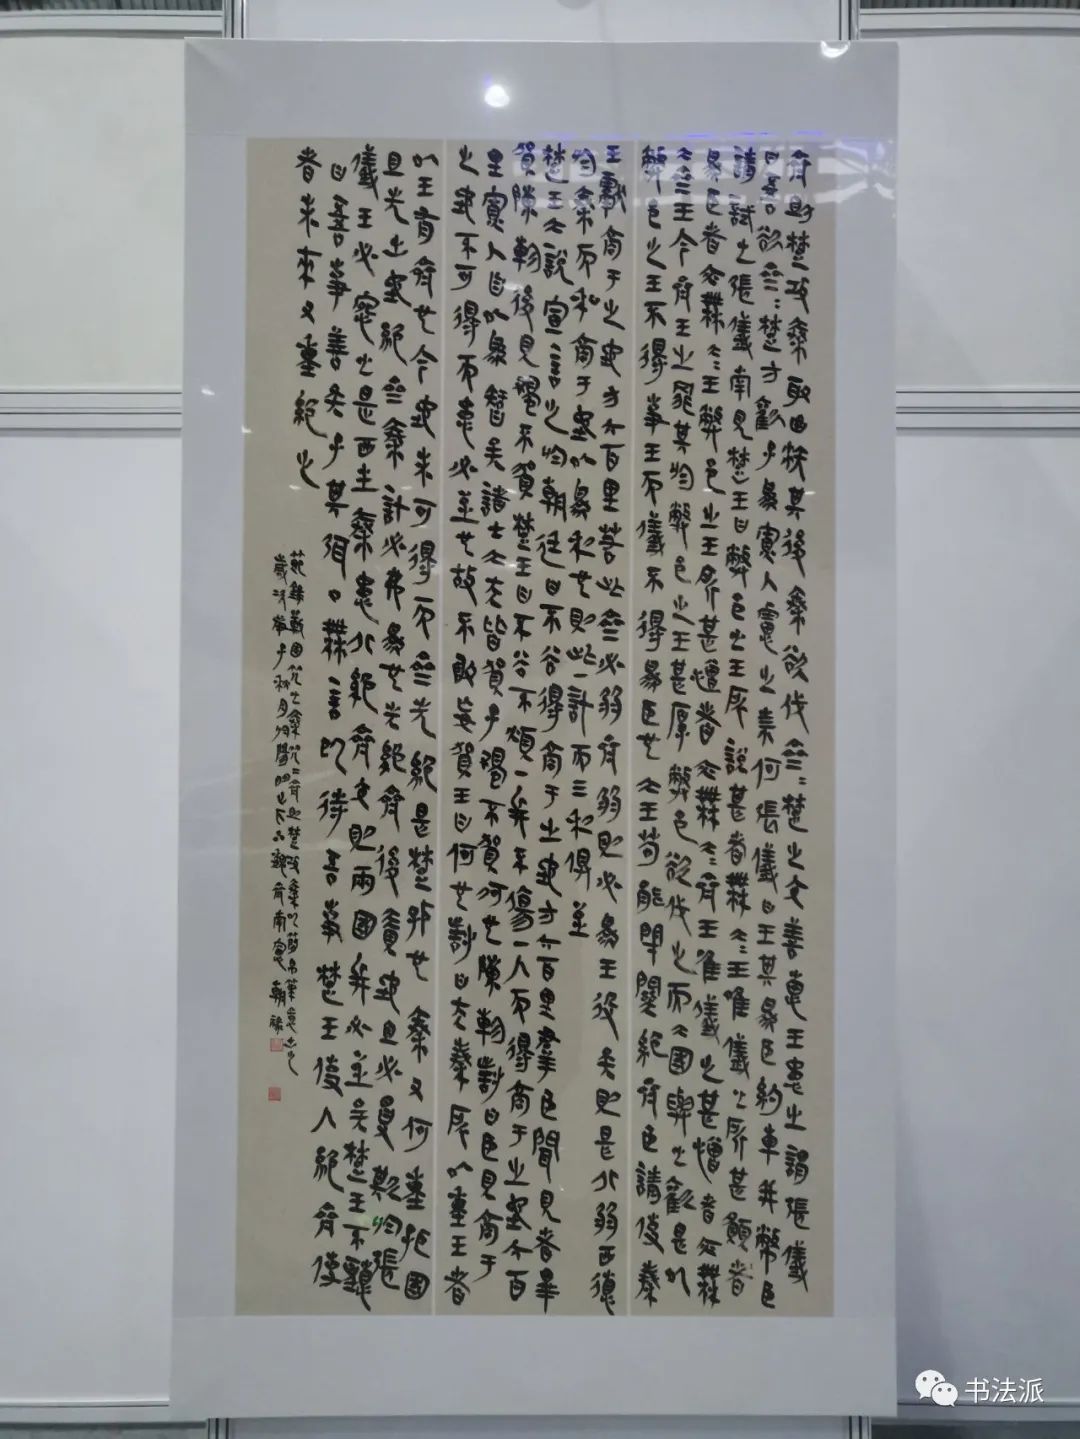 齊助楚攻秦取曲沃其後秦欲伐齊=楚之交善惠王患之謂張儀
曰吾欲伐齊=楚方歡子為寡人慮之柰何張儀曰王其為臣約車并幣臣
請試之張儀南見楚王曰弊邑之王所說甚者無大=王唯儀之所甚願為
臣者亦無大=王弊邑之王所甚憎者亦無大=齊王唯儀之甚憎者亦無
大=齊王今齊王之罪其於弊邑之王甚厚弊邑欲伐之而大國與之歡是以
弊邑之王不得事王而儀不得為臣也大王苟能閉關絕齊臣請使秦
王獻商于之地方六百里若此齊必弱齊弱則必為王役矣則是北弱西德
於秦而私商于地以為利也則此一計而三利俱至
楚王大說宣言之於朝廷曰不谷得商于之地方六百里群臣聞見者畢
賀陳軫後見獨不賀楚王曰不谷不煩一兵不傷一人而得商于之地六百
里寡人自以為智矣諸士大夫皆賀子獨不賀何也陳軫對曰臣見商于
之地不可得而患必至也故不敢妄賀王曰何也對曰夫秦所以重王者
以王有齊也今地未可得而齊先絕是楚孤也秦又何重孤國
且先出地絕齊秦計必弗為也先絕齊後責地且必受欺於張
儀王必惋之是西生秦患北絕齊交則兩國兵必至矣楚王不聽
曰吾事善矣子其弭口無言以待吾事楚王使人絕齊使
者未來又重絕之
戰國策之秦策二齊助楚攻秦以
歲次庚子秋月
书法派